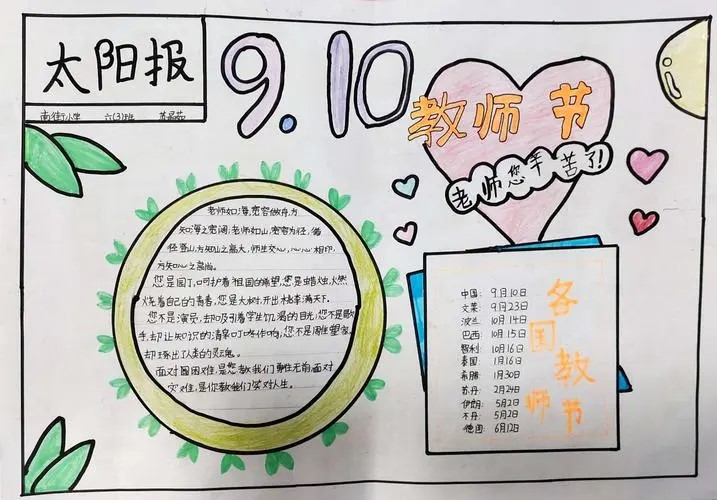 太阳报
南街小学 六(3)班
9.10
教师节
老师您辛苦了!
老师如海,宽容做舟,方
知海之宽阔;老师如山,宽容为径,循
径登山,方知山之高大,师生交心,心心相印,
方知心之高尚。
您是园丁,呵护着祖国的希望,您是蜡烛,燃
烧着自己的青春,您是大树,开出桃李满天下。
您不是演员,却吸引着学生饥渴的目光,您不是歌
手,却让知识的清泉叮咚作响,您不是雕塑家,
却琢出了人类的灵魂。
面对困难,是您教我们勇往无前,面对
灾难,是你教我们笑对人生。
各国教师节
中国: 9月10日
文莱: 9月23日
波兰: 10月14日
巴西: 10月15日
智利: 10月16日
泰国: 1月16日
希腊: 1月30日
苏丹: 2月24日
伊朗: 5月2日
不丹: 5月2日
德国: 6月12日